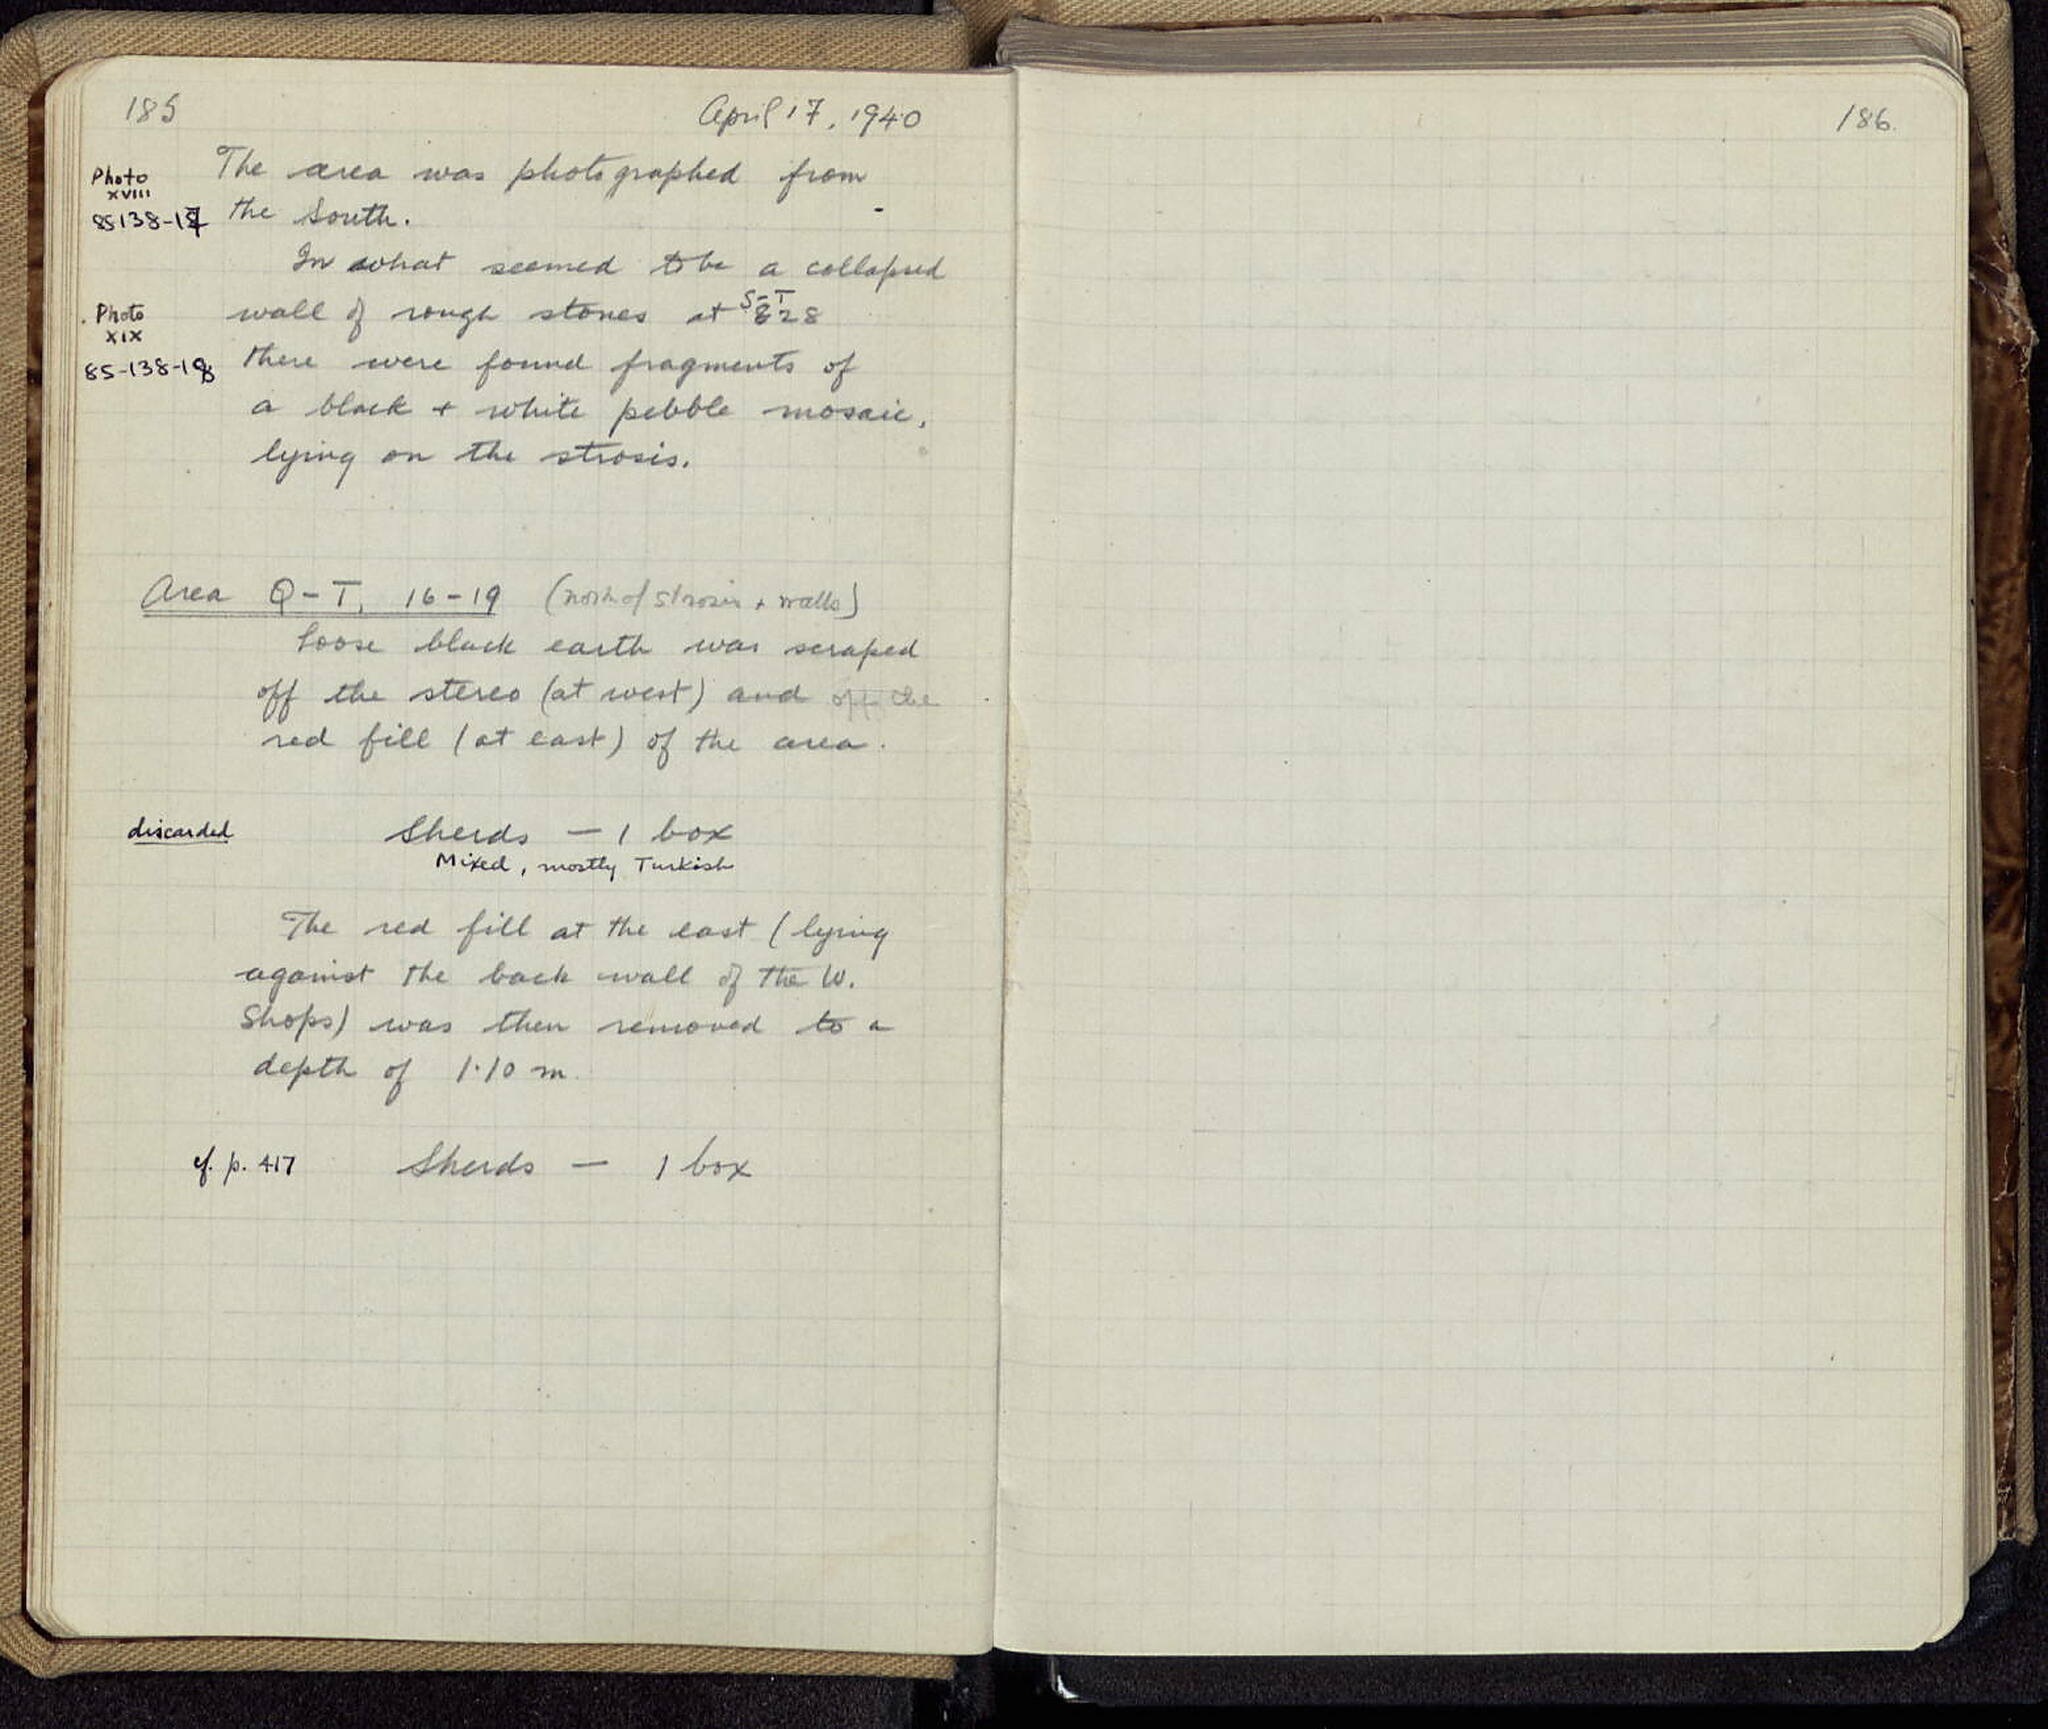 185
April 17, 1940
Photo
XVIII
85 138-17
The area was photographed from
the South.
In what seemed to be a collapsed
Photo
XIX
85-138-18
wall of rough stones at S-T 28
there were found fragments of
a black + white pebble mosaic,
lying on the strosis.
Area Q-T, 16-19 (north of strosis + walls)
Loose black earth was scraped
off the stereo (at west) and off the
red fill (at east) of the area.
discarded
Sherds — 1 box
Mixed, mostly Turkish
The red fill at the east (lying
against the back wall of the W.
Shops) was then removed to a
depth of 1.10 m.
cf. p. 417
Sherds — 1 box
186.